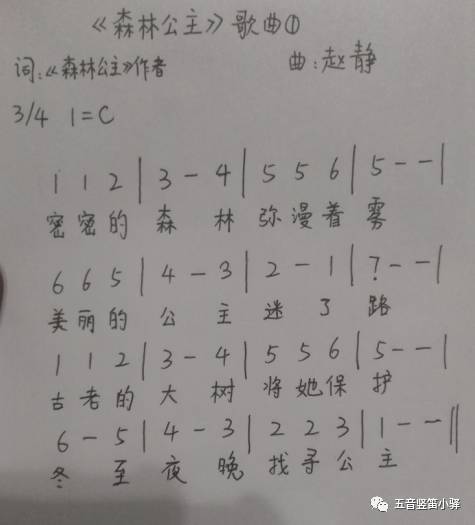 《森林公主》歌曲①
词:《森林公主》作者 曲:赵静
3/4 1=C
1 1 2 | 3 - 4 | 5 5 6 | 5 - - |
密密的 森 林 弥漫着 雾
6 6 5 | 4 - 3 | 2 - 1 | 7 - - |
美丽的 公 主 迷 了 路
1 1 2 | 3 - 4 | 5 5 6 | 5 - - |
古老的 大 树 将她保 护
6 - 5 | 4 - 3 | 2 2 3 | 1 - - ||
冬 至 夜 晚 找寻公 主
五音竖笛小驿